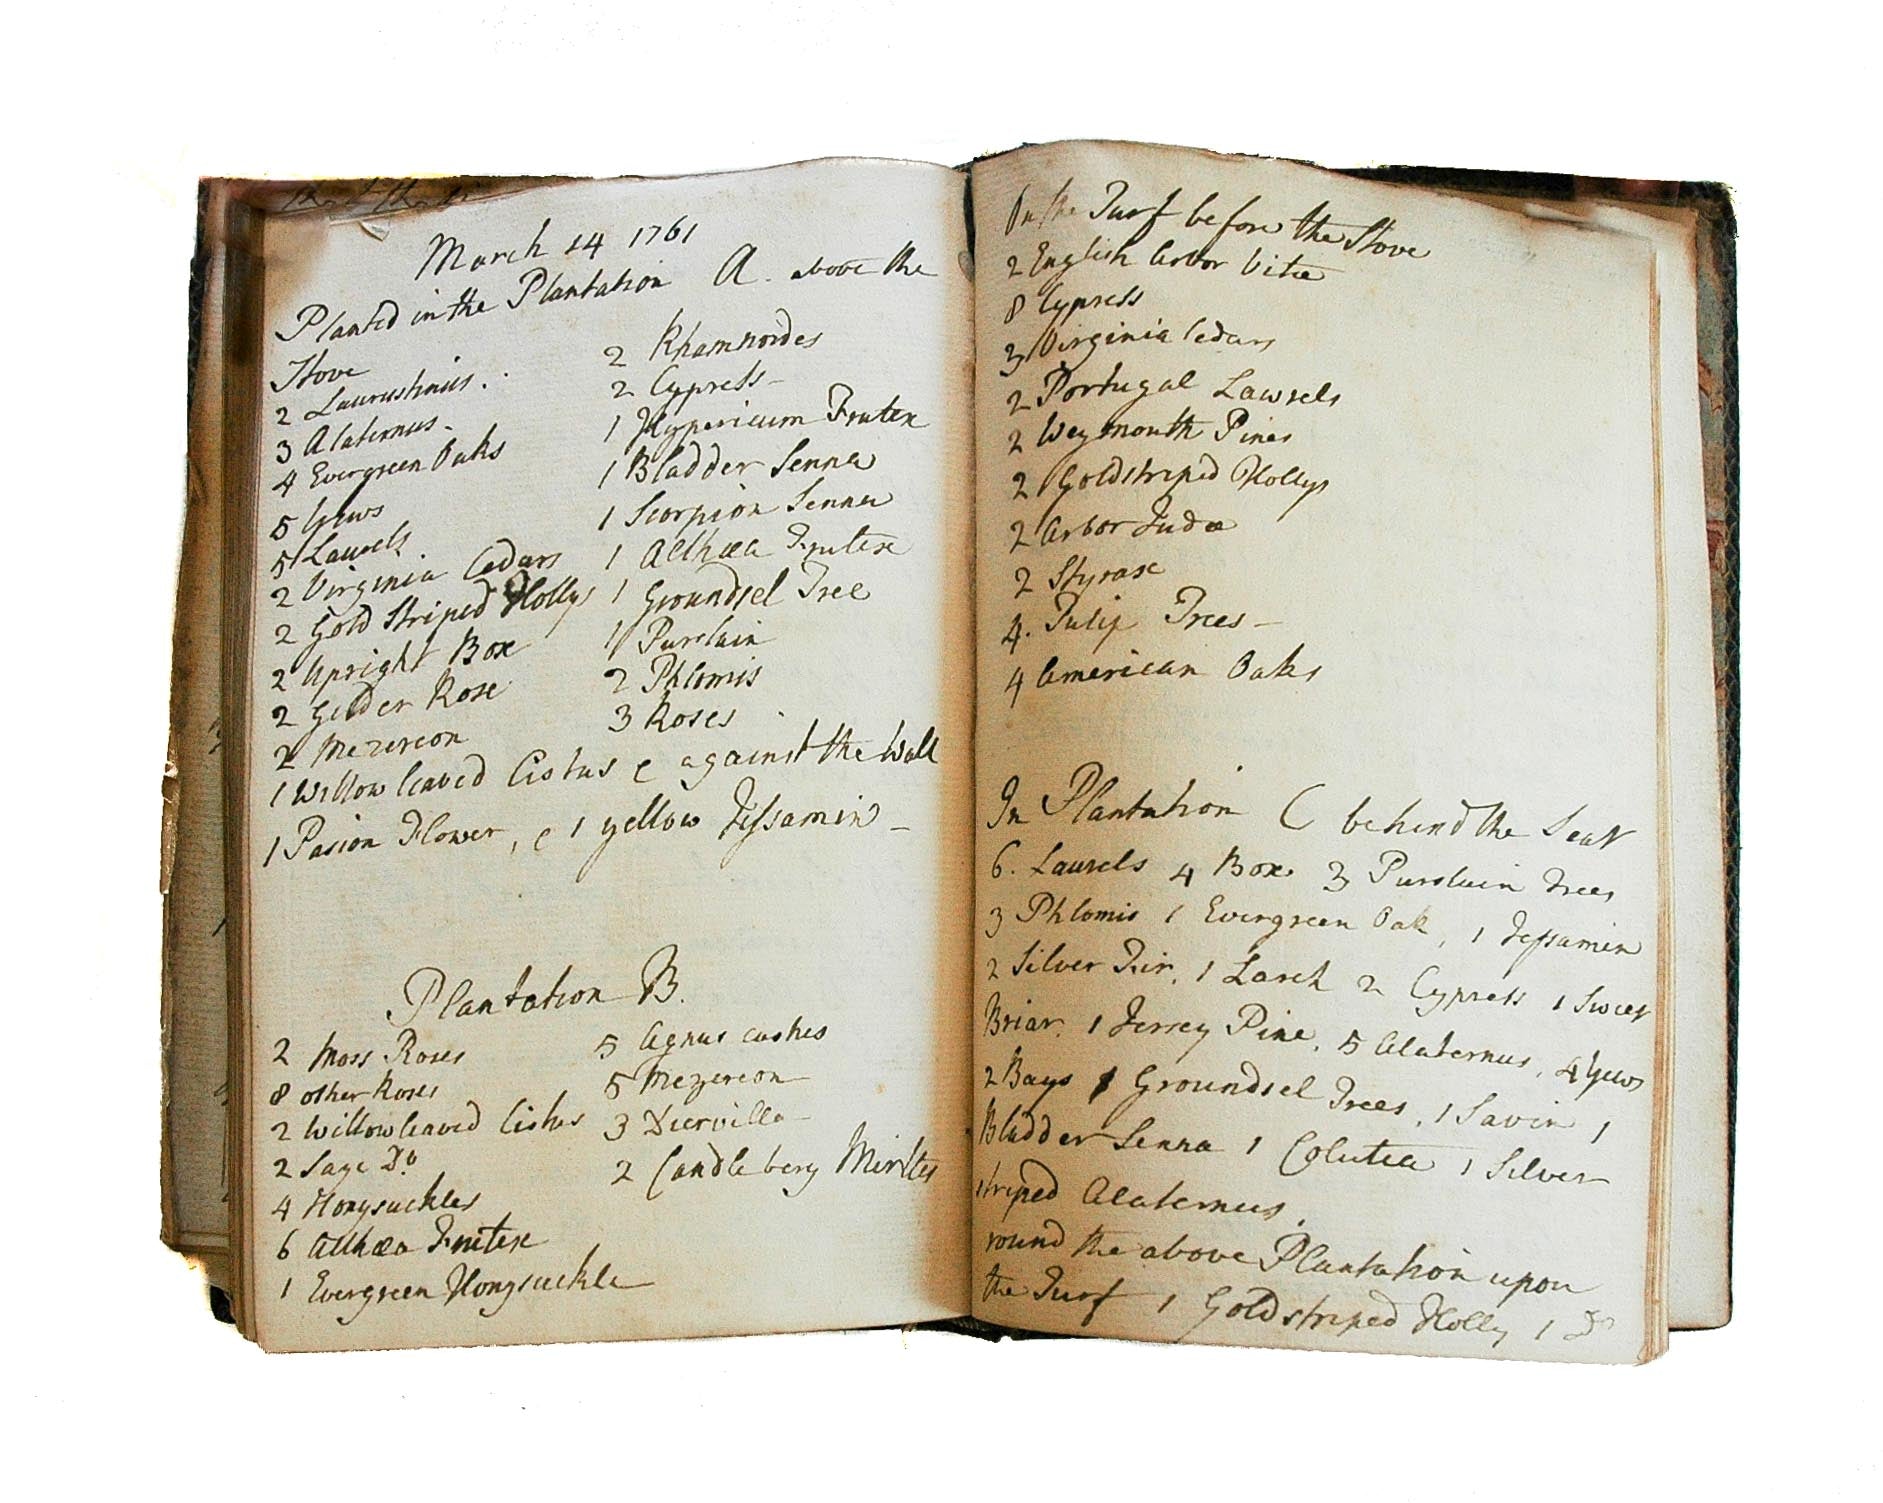 March 14 1761
Planted in the Plantation A. above the
Stove
2 Laurustinus.
3 Alaternus.
4 Evergreen Oaks
5 Yews
5 Laurels
2 Virginia Cedars
2 Gold Striped Hollys
2 Upright Box
2 Gelder Rose
2 Mezereon
2 Rhamnoides
2 Cypress
1 Hypericum Frutex
1 Bladder Senna
1 Scorpion Senna
1 Althæa Frutex
1 Groundsel Tree
1 Purslain
2 Phlomis
3 Roses
1 Willow leaved Cistus & against the Wall
1 Pasion Flower, & 1 yellow Jessamin
Plantation B.
2 Moss Roses
8 other Roses
2 Willow leaved Cistus
2 Sage Do
4 Honysuckles
6 Althæa Frutex
1 Evergreen Honysuckle
5 Agnus castus
5 Mezereon
3 Diervilla
2 Candle berry Mirtles
On the Turf before the Stove
2 English Arbor Vitæ
8 Cypress
3 Virginia Cedars
2 Portugal Lawrels
2 Weymouth Pines
2 Goldstriped Hollys
2 Arbor Judæ
2 Styrax
4. Tulip Trees
4 American Oaks
In Plantation C behind the Seat
6. Laurels 4 Box 3 Purslain Trees
3 Phlomis 1 Evergreen Oak, 1 Jessamin
2 Silver Fir, 1 Larch 2 Cypress 1 Sweet
Briar, 1 Jersey Pine, 5 Alaternus, 4 Yews
2 Bays 1 Groundsel Trees, 1 Savin 1
Bladder Senna 1 Colutea 1 Silver
striped Alaternus.
round the above Plantation upon
the Turf 1 Gold striped Holly 1 Do